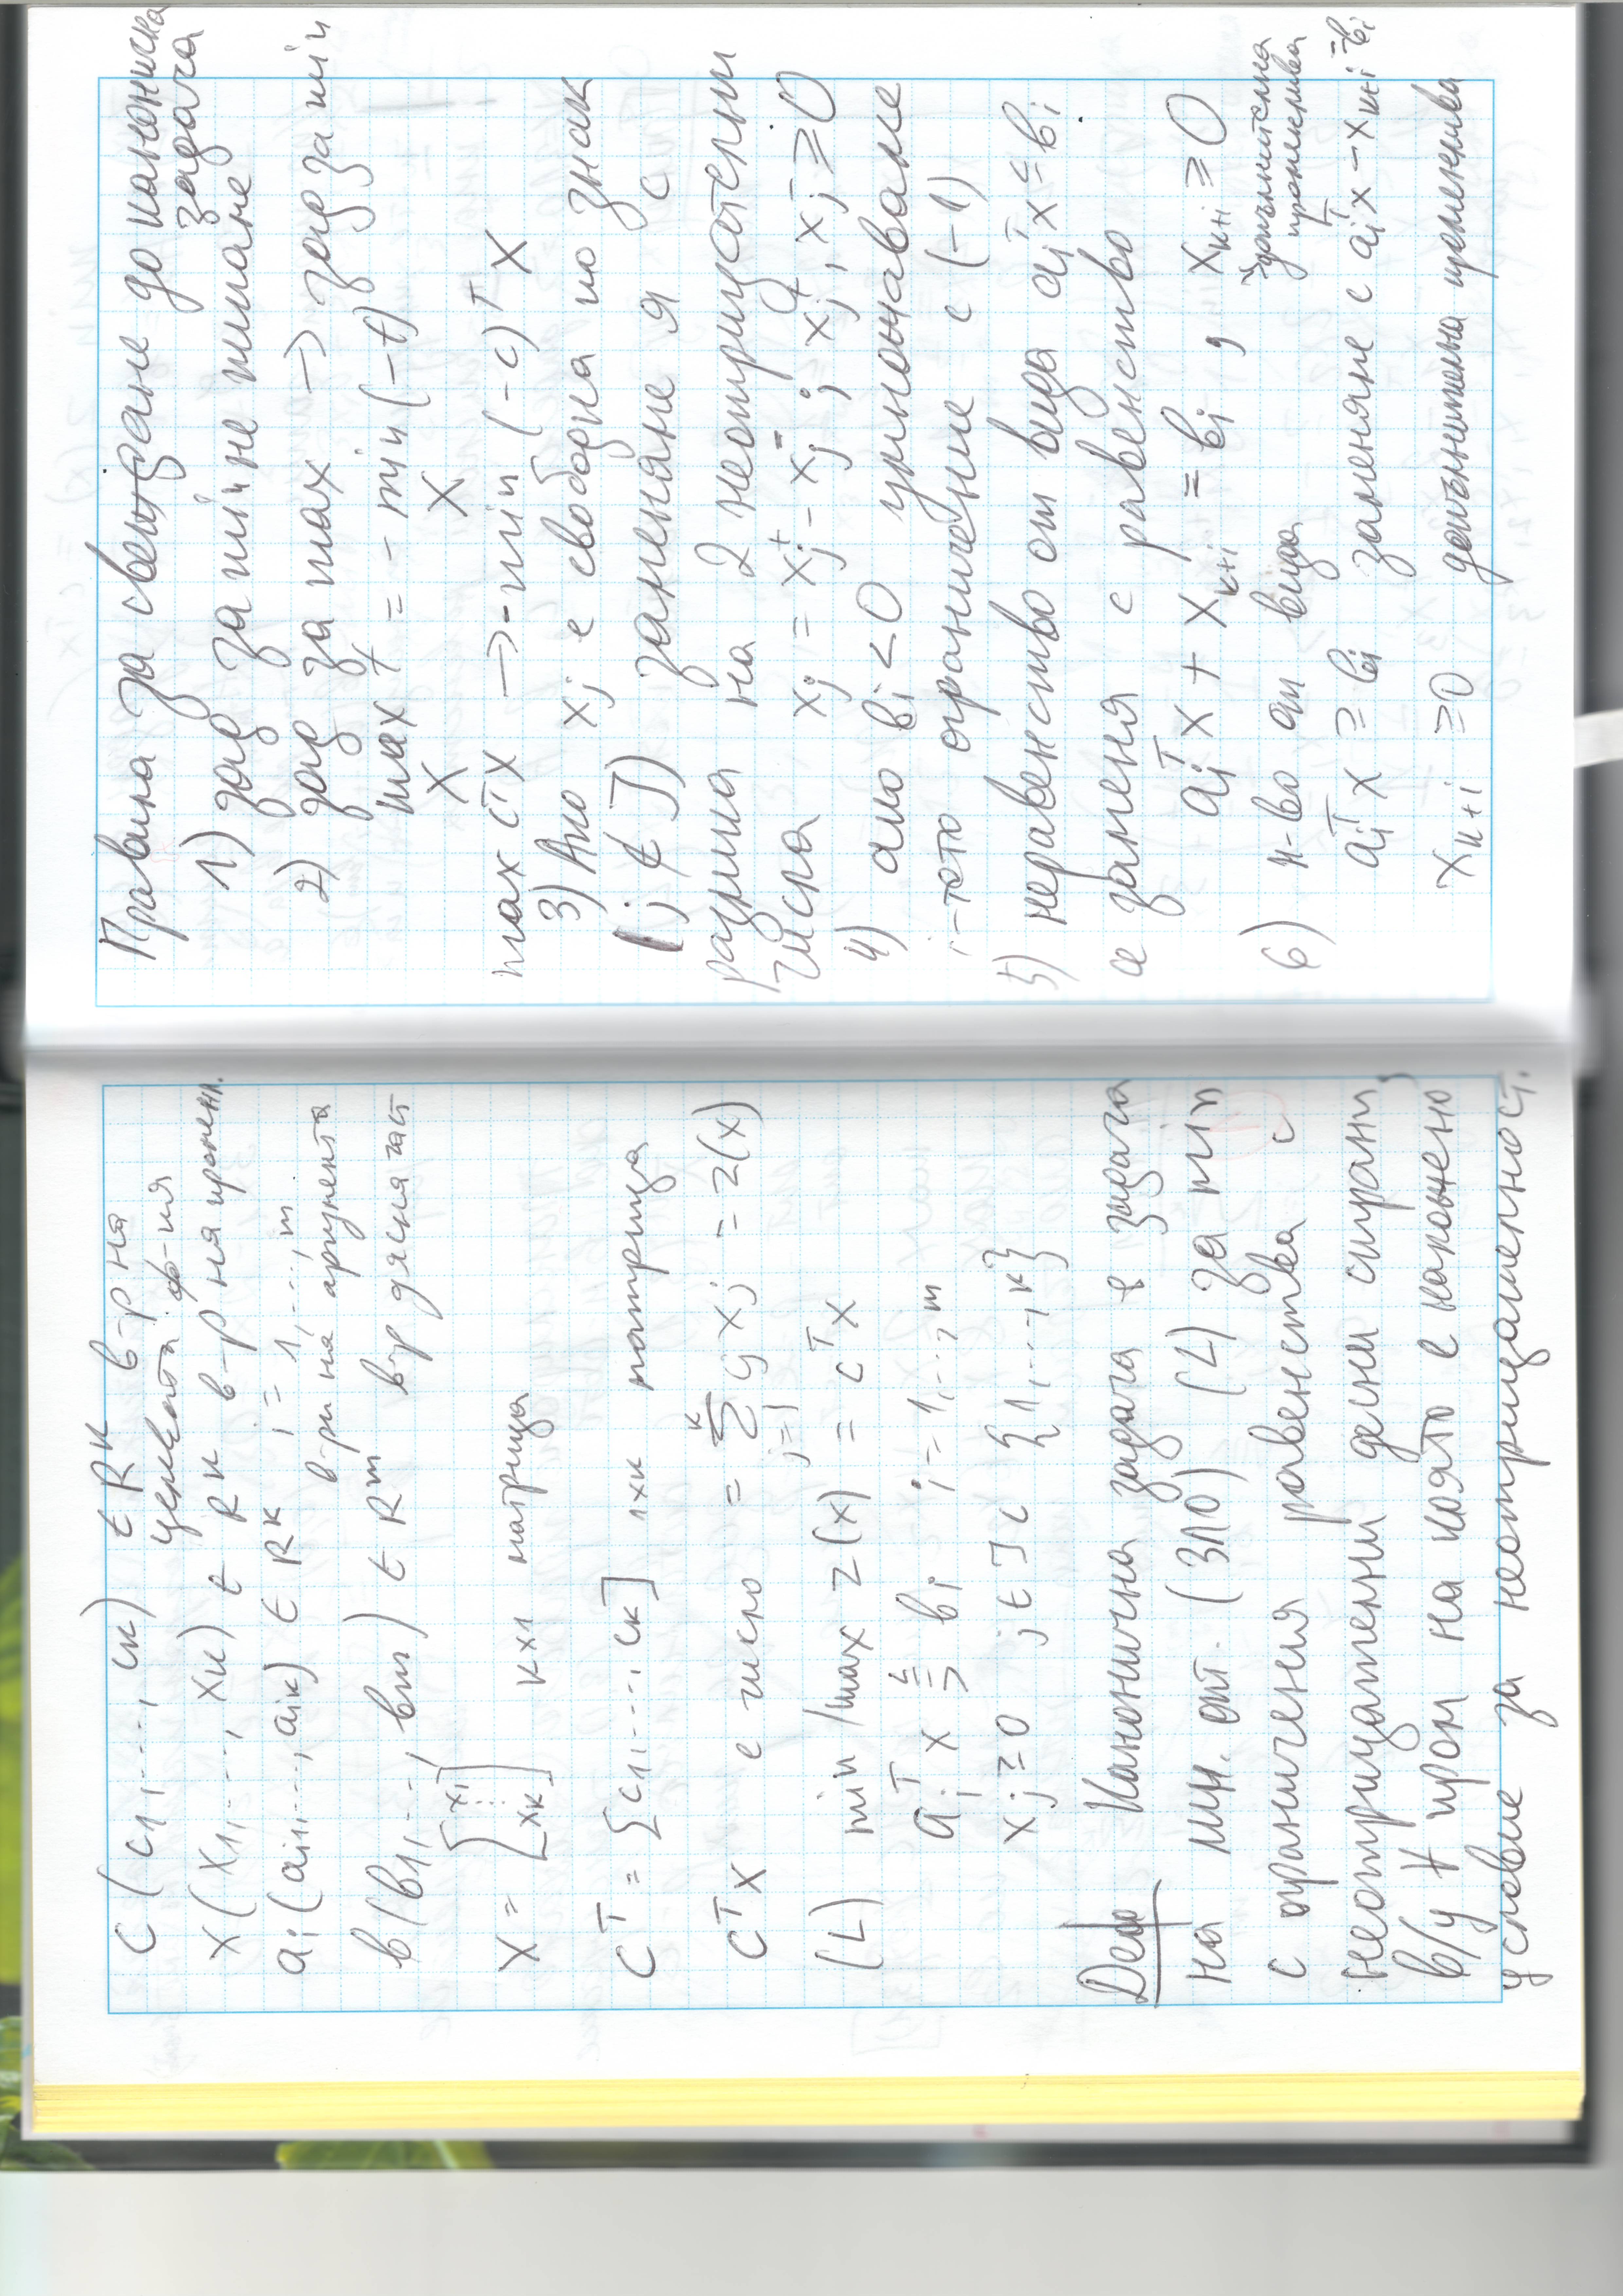 c (c1, ..., cк) ∈ Rᴷ в-р на
целевата ф-ия
x (x1, ..., xк) ∈ Rк в-р на промен.
ai (ai1, ..., aiк) ∈ Rᴷ i = 1, ..., m
в-ри на аргумента
в (в1, ..., вm) ∈ Rᵐ в-р дясна част
x = [x1 ⋮ xк] к×1 матрица
cᵀ = [c1, ..., cк] 1×к матрица
cᵀx е число = Σ_{j=1}^{к} cj xj = z(x)
(L) min/max z(x) = cᵀx
aiᵀx ⪋ вi i = 1, ..., m
xj ≥ 0 j ∈ J ⊂ {1, ..., к}
Деф Канонична задача е задача
на лин. опт. (ЗЛО) (L) за min
с ограничения равенства с
неотрицателни десни страни,
в/у ∀ пром на която е наложено
условие за неотрицателност.
Правила за свеждане до канонична
задача
1) зад за min не пипаме
2) зад за max → зад за min
max f = - min (-f)
x x
max cᵀx → - min (-c)ᵀx
3) Ако xj е свободна по знак
(j ∉ J) заменяме я с
разлика на 2 неотрицателни
числа xj = xj⁺ - xj⁻; xj⁺, xj⁻ ≥ 0
4) ако вi < 0 умножаваме
i-тото ограничение с (-1)
5) неравенство от вида aiᵀx ≤ вi
се заменя с равенство
aiᵀx + xк+i = вi , xк+i ≥ 0
допълнителна
променлива
6) н-во от вида
aiᵀx ≥ вi заменяме с aiᵀx - xк+i = вi
xк+i ≥ 0 допълнителна променлива